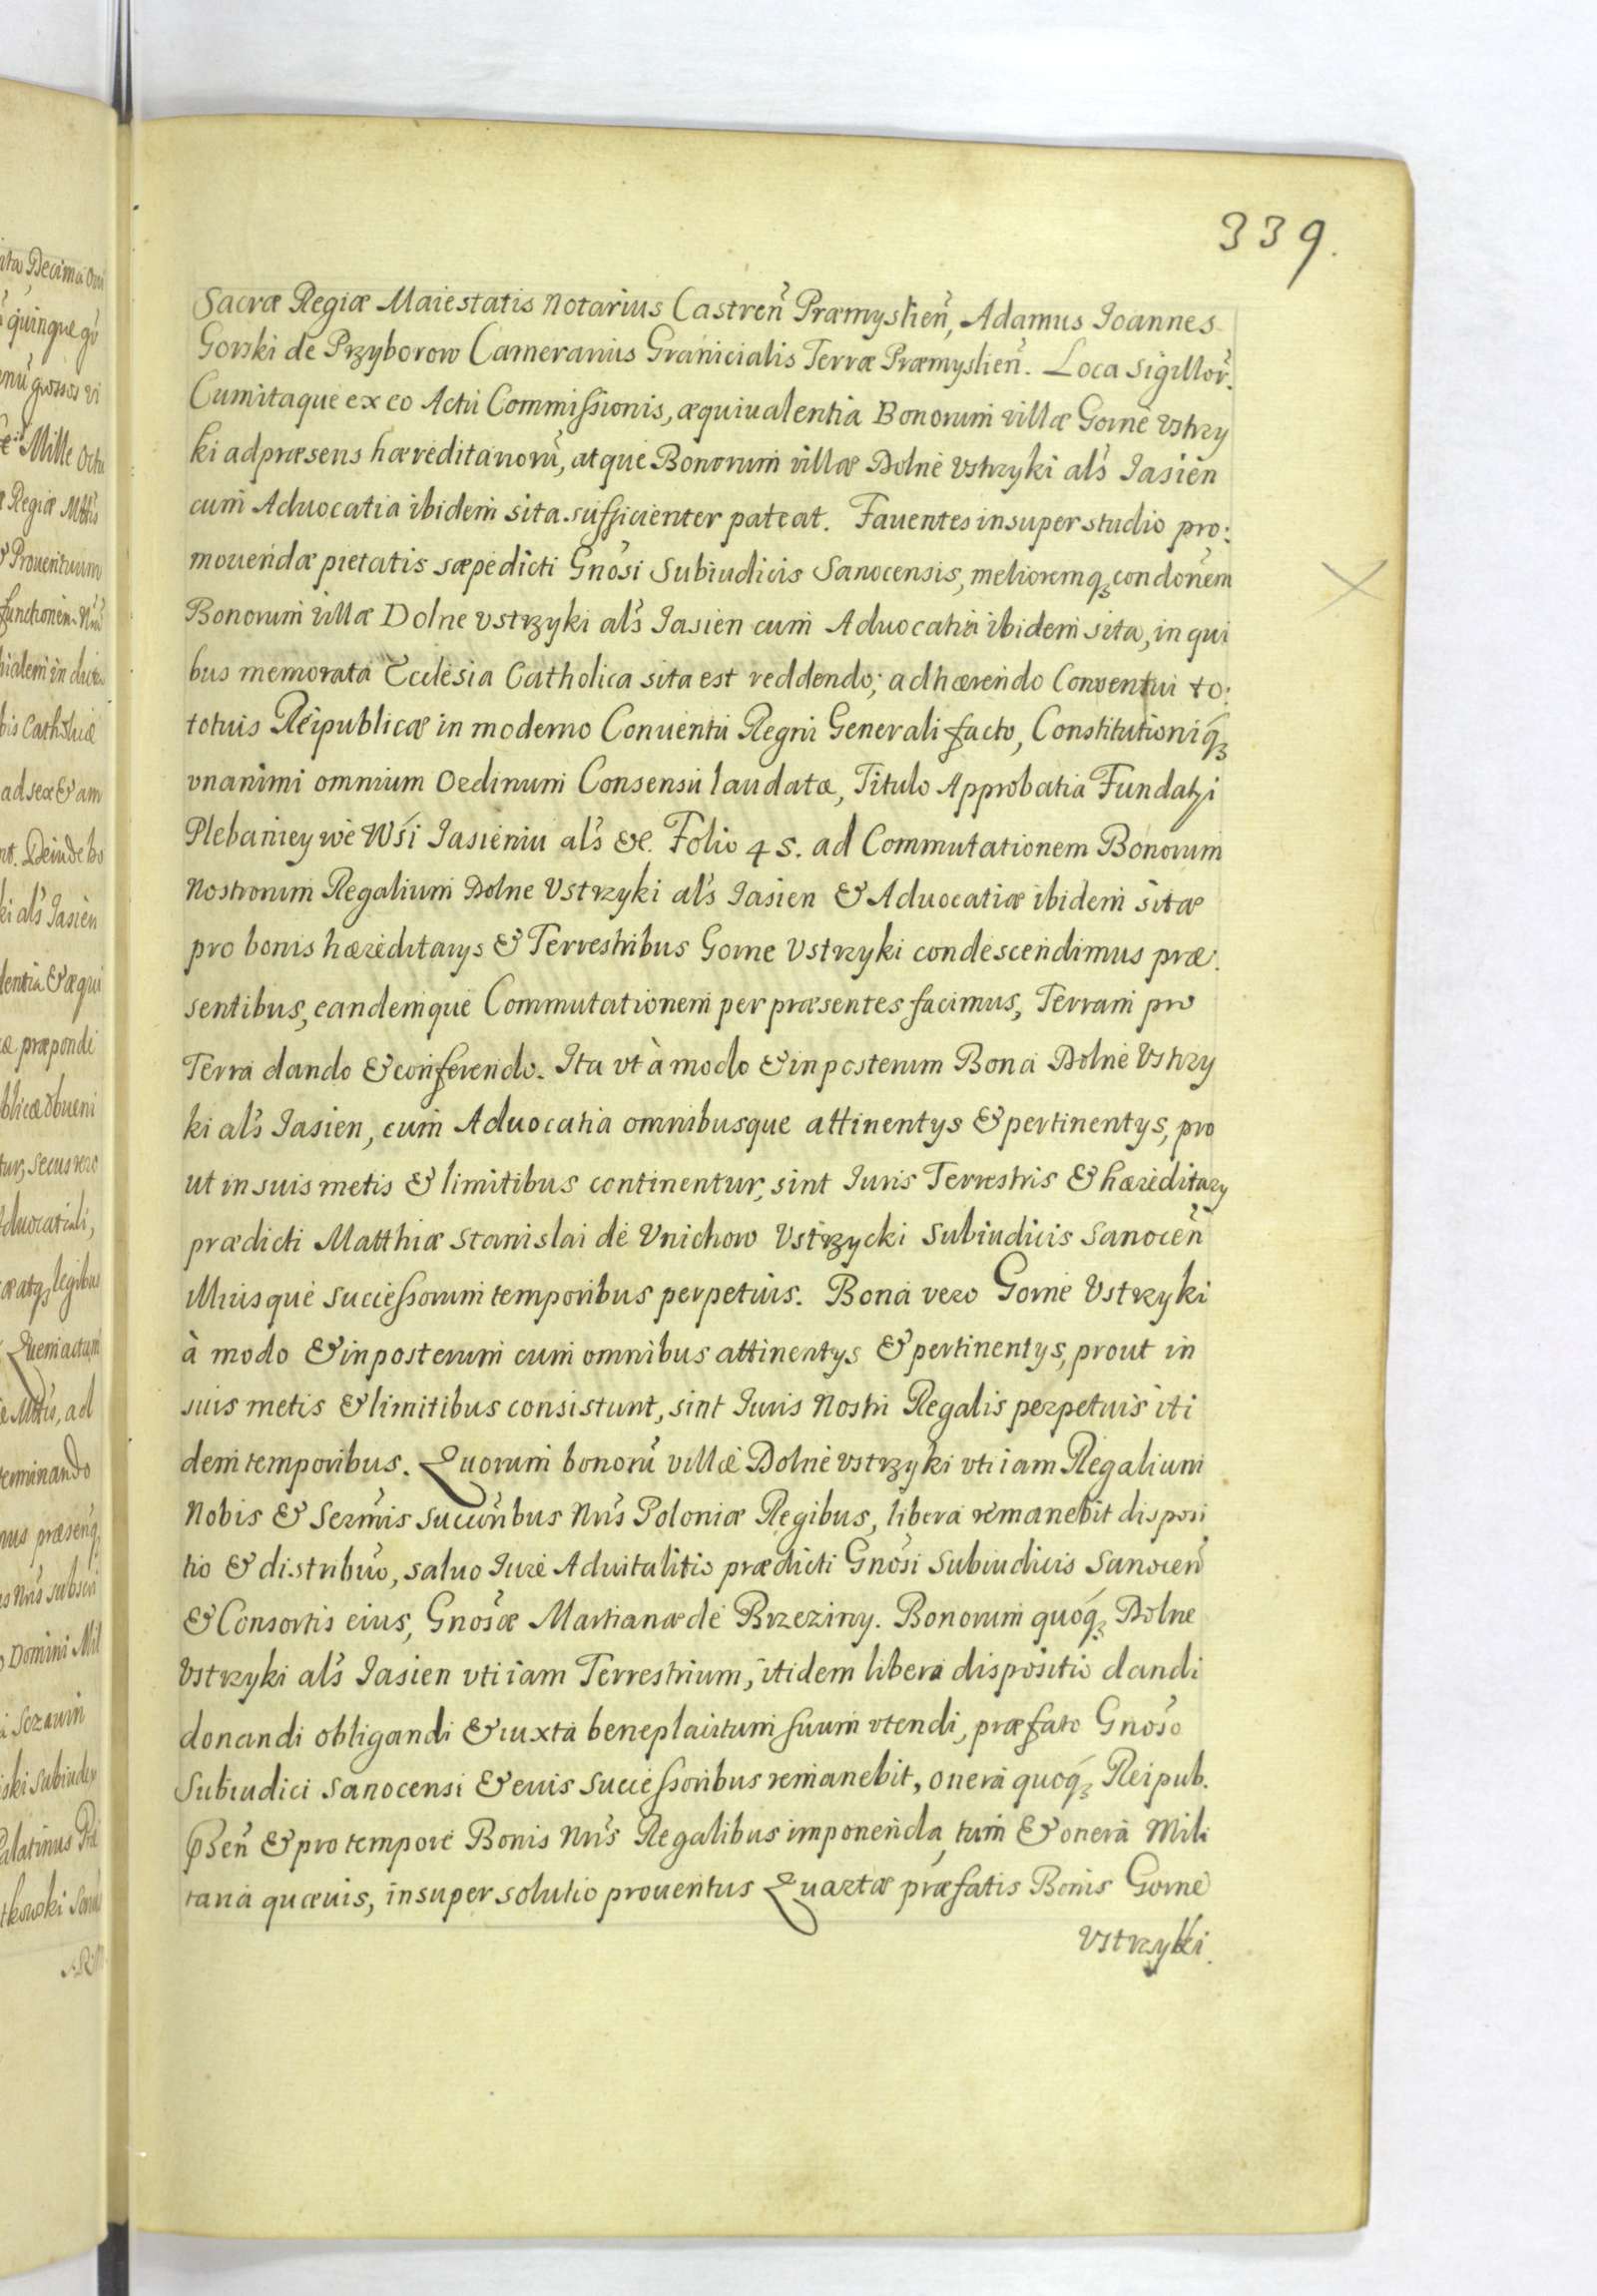 339.
Sacræ Regiæ Maiestatis Notarius Castren̄ Præmyslien̄, Adamus Joannes
Gorski de Przyborow Camerarius Granicialis Terræ Præmyslien̄. Loca sigillor̄.
Cum itaque ex eo Actu Commissionis, æquiualentia Bonorum villæ Gorne Vstrzy
ki ad præsens hæreditariorū, atque Bonorum villæ Dolne Vstrzyki als̄ Jasien
cum Aduocatia ibidem sita sufficienter pateat. Fauentes insuper studio pro:
mouendæ pietatis sæpedicti Gnōsi Subiudicis Sanocensis, melioremq₃ condōnem
Bonorum villæ Dolne Vstrzyki als̄ Jasien cum Aduocatia ibidem sita, in qui
bus memorata Ecclesia Catholica sita est reddendo; adhærendo Conventui to:
totuis Reipublicæ in moderno Conuentu Regni Generali facto, Constitutioniq́₃
vnanimi omnium Ordinum Consensu laudatæ, Titulo Approbatia Fundatzi
Plebaniey we Wśi Jasieniu als̄ &c. Folio 45. ad Commutationem Bonorum
Nostrorum Regalium Dolne Vstrzyki als̄ Jasien & Aduocatiæ ibidem sitæ
pro bonis hæreditarys & Terrestribus Gorne Vstrzyki condescendimus præ:
sentibus, eandemque Commutationem per præsentes facimus, Terram pro
Terra dando & conferendo. Ita vt à modo & in posterum Bona Dolne Vstrzy
ki als̄ Jasien, cum Aduocatia omnibusque attinentys & pertinentys, pro
ut in suis metis & limitibus continentur, sint Juris Terrestris & hæreditary
prædicti Matthiæ Stanislai de Unichow Vstrzycki Subiudicis Sanocen̄
illiusque successorum temporibus perpetuis. Bona vero Gorne Vstrzyki
à modo & in posterum cum omnibus attinentys & pertinentys, prout in
suis metis & limitibus consistunt, sint Juris Nostri Regalis perpetuis iti
dem temporibus. Quorum bonorū villæ Dolne Vstrzyki vti iam Regalium
Nobis & Serm̄is succūribus Nr̄is Poloniæ Regibus, libera remanebit disposi
tio & distribūo, saluo Jure Aduitalitio prædicti Gnōsi Subiudicis Sanocen̄
& Consortis eius, Gnōsæ Martianæ de Brzeziny. Bonorum quoq́₃ Dolne
Vstrzyki als̄ Jasien vti iam Terrestrium, itidem libera dispositio dandi
donandi obligandi & iuxta beneplacitum suum vtendi, præfato Gnōso
Subiudici Sanocensi & euis successoribus remanebit, onera quoq́₃ Reipub.
p̄sen̄ & pro tempore Bonis Nr̄is Regalibus imponenda, tum & onera Mili
taria quævis, insuper solutio prouentus Quartæ præfatis Bonis Gorne
Vstrzyki.